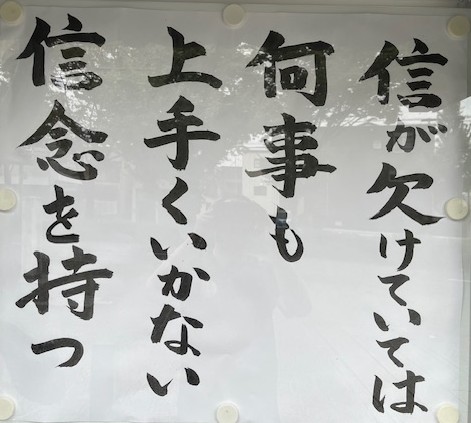 信が欠けていては
何事も
上手くいかない
信念を持つ